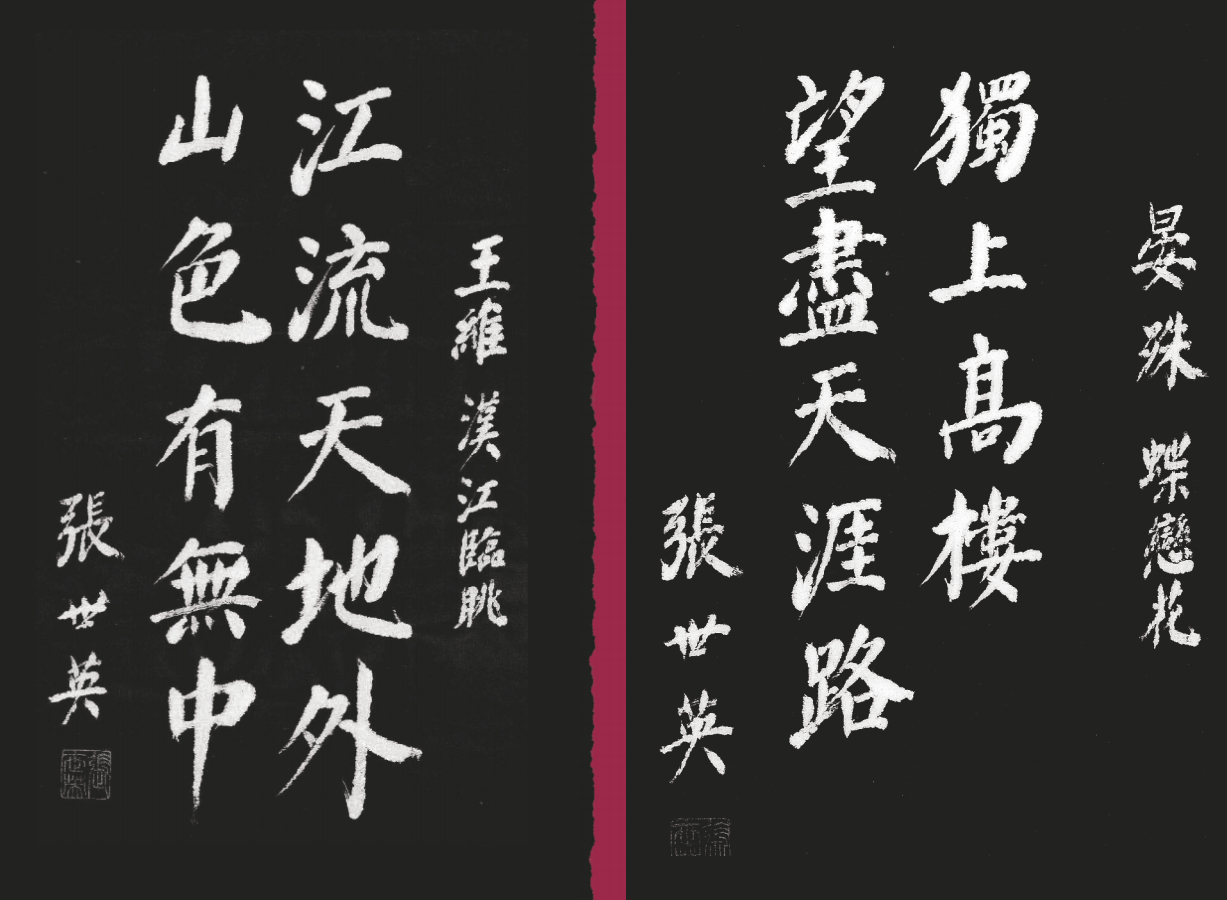 王維 漢江臨眺
江流天地外
山色有無中
張世英
晏殊 蝶戀花
獨上高樓
望盡天涯路
張世英